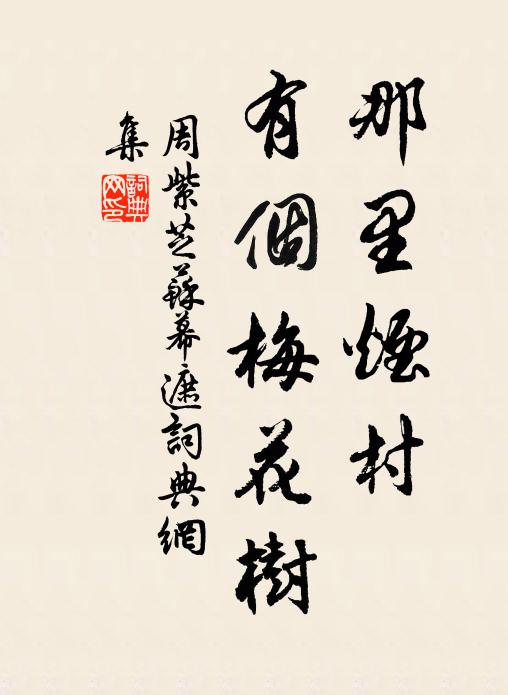 那里煙村
有個梅花樹
周紫芝蘇幕遮詞典網
集
詞典網印